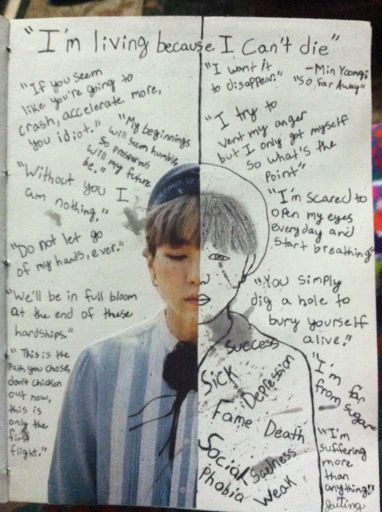 "I'm living because I Can't die"
-Min Yoongi
"So Far Away"
"If you seem
like you're going to
crash, accelerate more,
you idiot."
"My beginnings
will seem humble,
so prosperous
will my future
be."
"Without you I
am nothing."
"Do not let go
of my hands, ever."
"We'll be in full bloom
at the end of these
hardships."
"This is the
Path you chose,
don't chicken
out now,
this is
only the
first
flight."
"I want it
to disappear."
"I try to
vent my anger
but I only got myself
so what's the
point"
"I'm scared to
open my eyes
everyday and
start breathing"
"You simply
dig a hole to
bury yourself
alive."
success
Sick
Depression
Fame
Death
Social
Phobia
Sadness
Weak
"I'm far
from sugar"
"I'm
suffering
more
than
anything."